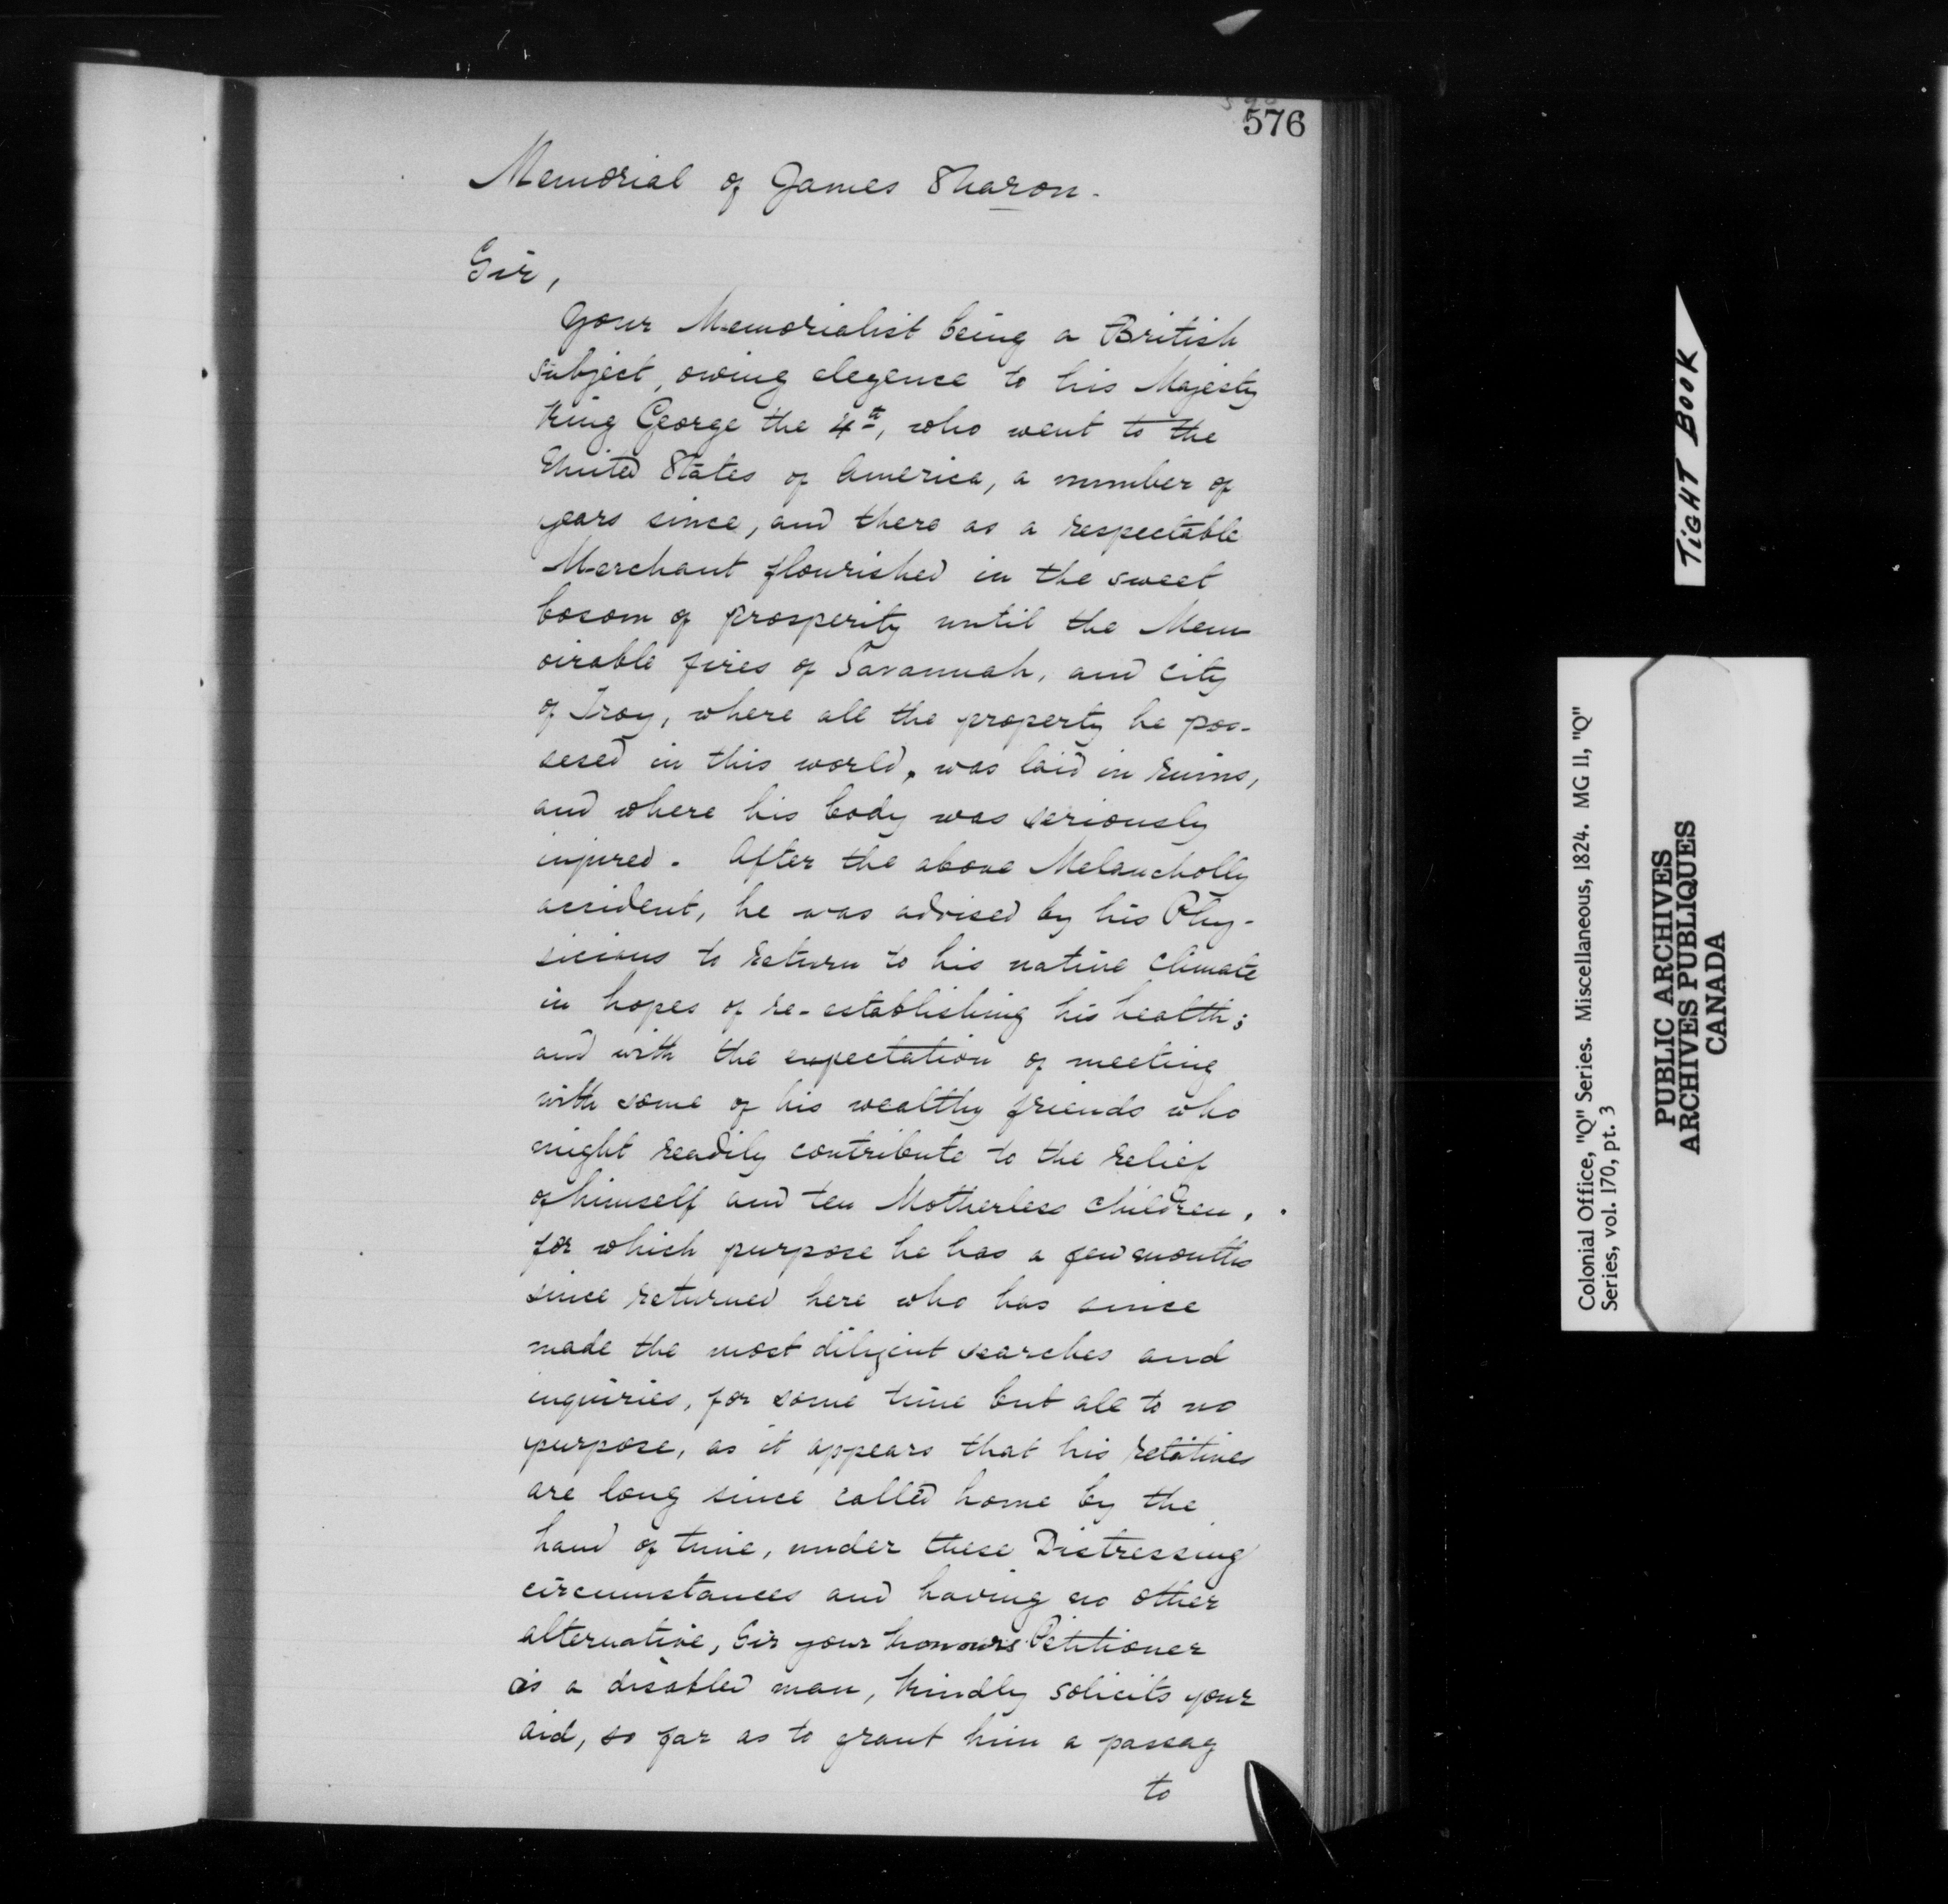 576
Memorial of James Sharon.
Sir,
Your Memorialist being a British
subject, owing elegence to his Majesty
King George the 4th, who went to the
United States of America, a number of
years since, and there as a respectable
Merchant flourished in the sweet
bosom of prosperity until the Mem
oirable fires of Savannah, and City
of Troy, where all the property he pos-
sesed in this world, was laid in ruins,
and where his body was seriously
injured. After the above Melancholly
accident, he was advised by his Phy-
sicians to return to his native climate
in hopes of re-establishing his health;
and with the expectation of meeting
with some of his wealthy friends who
might readily contribute to the relief
of himself and ten Motherless children,
for which purpose he has a few months
since returned here who has since
made the most diligent searches and
inquiries, for some time but all to no
purpose, as it appears that his relatives
are long since called home by the
hand of time, under these Distressing
circumstances and having no other
alternative, Sir your honours Petitioner
as a disabled man, kindly solicits your
aid, so far as to grant him a passag
to
TIGHT BOOK
Colonial Office, "Q" Series. Miscellaneous, 1824. MG 11, "Q"
Series, vol. 170, pt. 3
PUBLIC ARCHIVES
ARCHIVES PUBLIQUES
CANADA